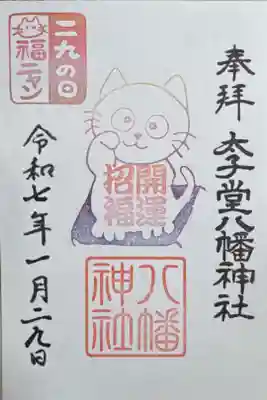 奉拝 太子堂八幡神社
二九の日
福ニャン
開運
招福
八幡
神社
令和七年一月二九日